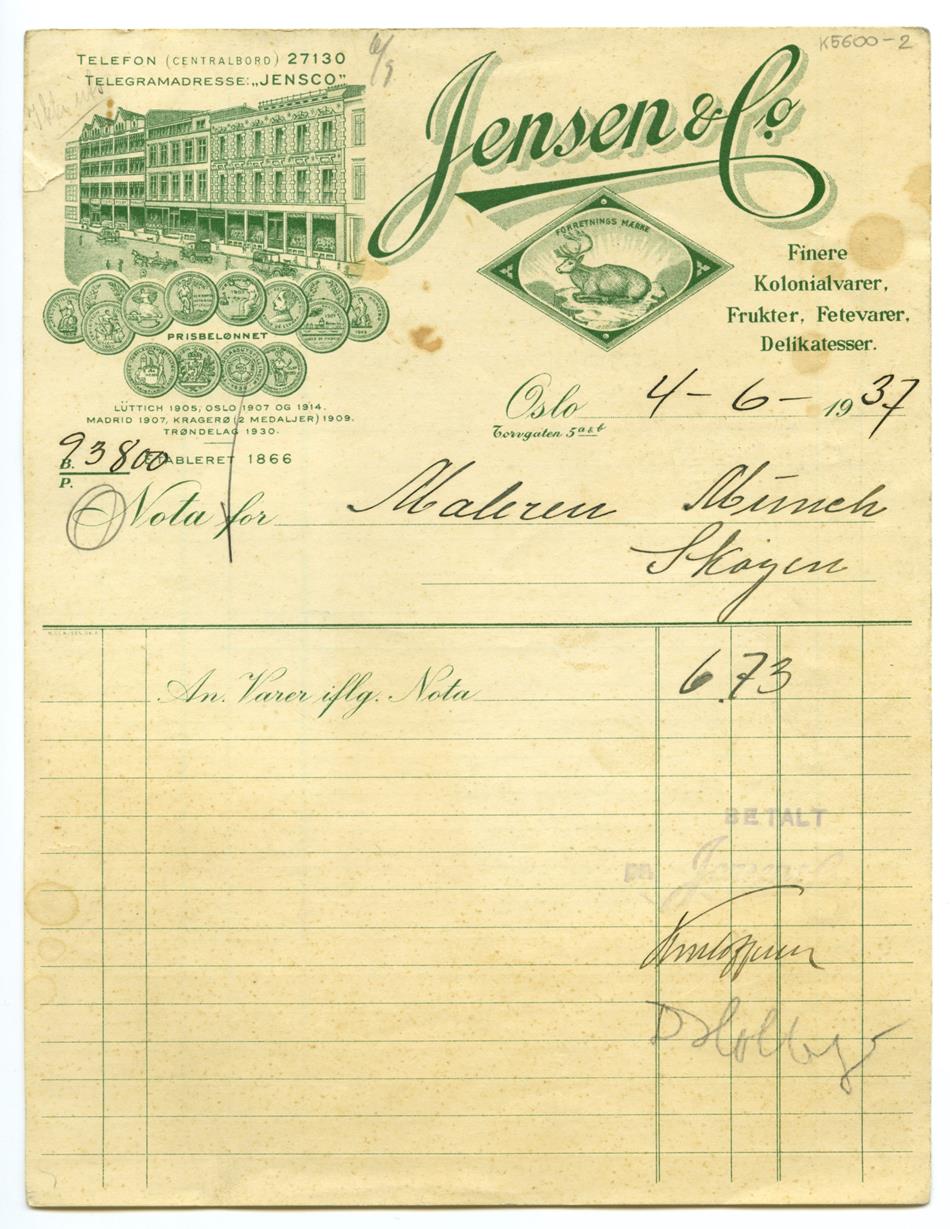 K5600-2
TELEFON (CENTRALBORD) 27130
TELEGRAMADRESSE: „JENSCO"
Jensen & Co.
FORRETNINGS MÆRKE
Finere
Kolonialvarer,
Frukter, Fetevarer,
Delikatesser.
PRISBELØNNET
LÜTTICH 1905, OSLO 1907 OG 1914.
MADRID 1907, KRAGERØ (2 MEDALJER) 1909.
TRØNDELAG 1930.
ETABLERET 1866
Oslo 4-6-1937
Torvgaten 5 a & b
B. 93800
P.
Nota for Maleren Munch
Skøyen
An. Varer iflg. Nota 6.73
BETALT